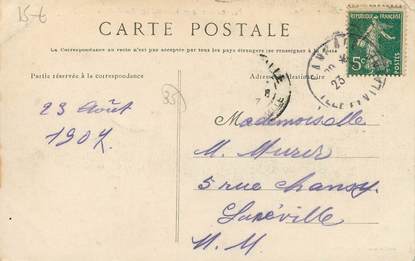 15-6
CARTE POSTALE
La Correspondance au recto n'est pas acceptée par tous les pays étrangers (se renseigner à la Poste)
Partie réservée à la correspondance
Adresse
5c
POSTES
23
35
23 Août
1907
Mademoiselle
M.
5 rue Chanzy
Lunéville
M. M